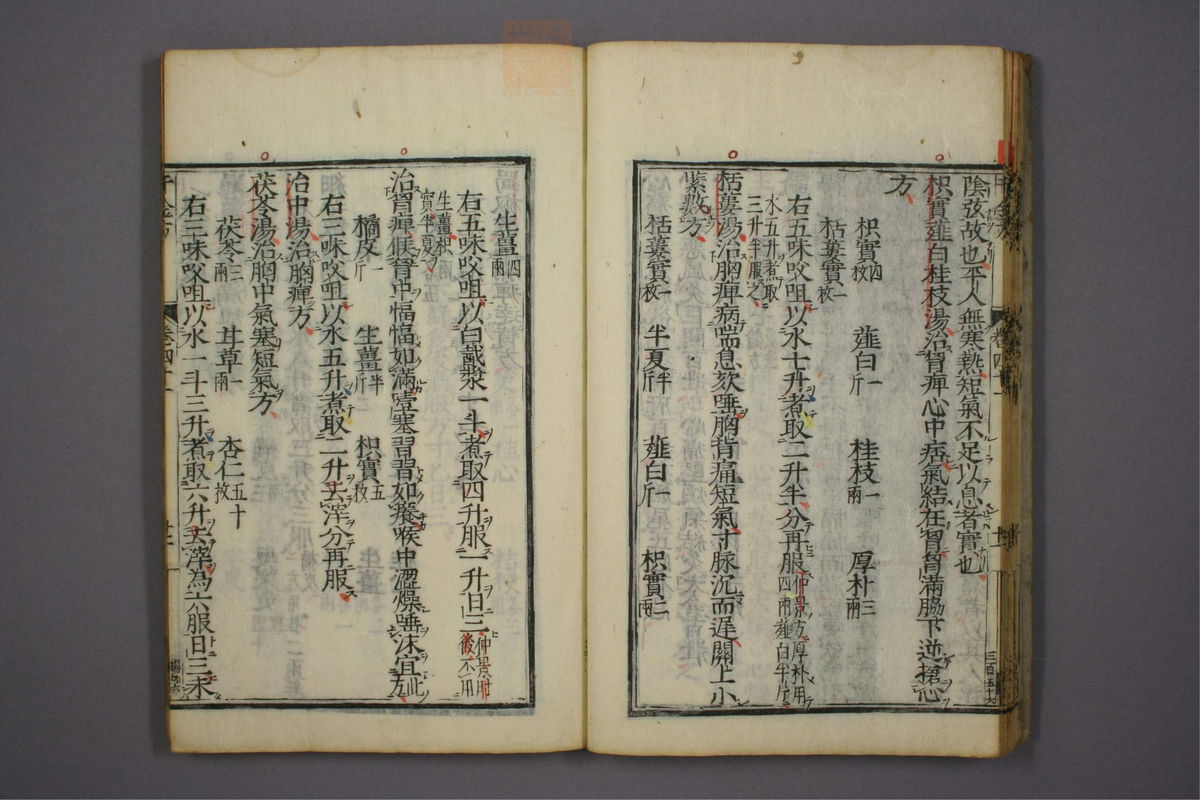 陰弦故也平人無寒熱短氣不足以息者實也
枳實薤白桂枝湯治胷痺心中痞氣結在胷胷滿脇下逆搶心
方
枳實四枚 薤白一斤 桂枝一兩 厚朴三兩
栝蔞實一枚
右五味㕮咀以水七升煮取二升半分再服仲景方厚朴用四兩薤白半斤
水五升煮取三升半服之
栝蔞湯治胸痺病喘息欬唾胸背痛短氣寸脉沉而遲關上小
緊數方
栝蔞實一枚 半夏半斤 薤白一斤 枳實二兩
生薑四兩
右五味㕮咀以白酨漿一斗煮取四升服一升日三仲景肘後不用
生薑枳實半夏
治胷痺候胷中愊愊如滿噎塞習習如癢喉中澀燥唾沫宜此方
橘皮一斤 生薑半斤 枳實五枚
右三味㕮咀以水五升煮取二升去滓分再服
治中湯治胸痺方
茯苓湯治胸中氣塞短氣方
茯苓三兩 甘草一兩 杏仁五十枚
右三味㕮咀以水一斗三升煮取六升去滓為六服日三未
千金方 卷四十二 十二